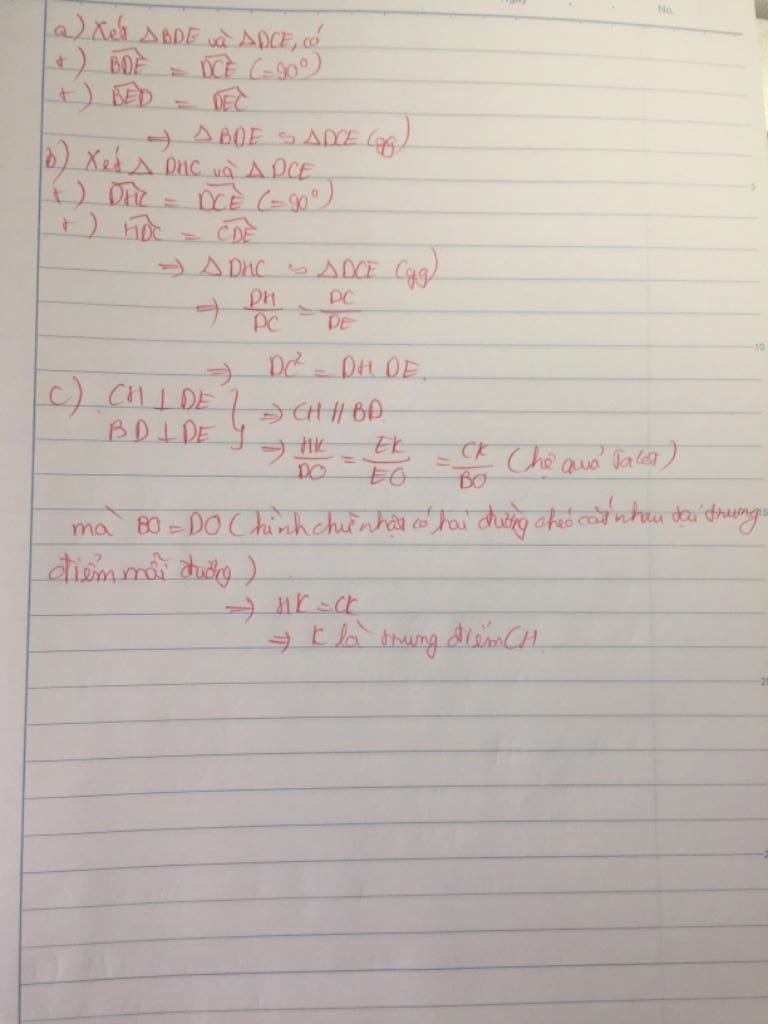 No.
a) Xét △BDE và △DCE, có
+) BDE = DCE (=90°)
+) BED = DEC
=> △BDE ∽ △DCE (gg)
b) Xét △DHC và △DCE
+) DHC = DCE (=90°)
+) HDC = CDE
=> △DHC ∽ △DCE (gg)
=> DH/DC = DC/DE
=> DC² = DH DE.
c) CH ⊥ DE
BD ⊥ DE } => CH // BD
=> HK/DO = EK/EO = CK/BO (hệ quả Talet)
mà BO = DO (hình chữ nhật có hai đường chéo cắt nhau tại trung
điểm mỗi đường)
=> HK = CK
=> K là trung điểm CH